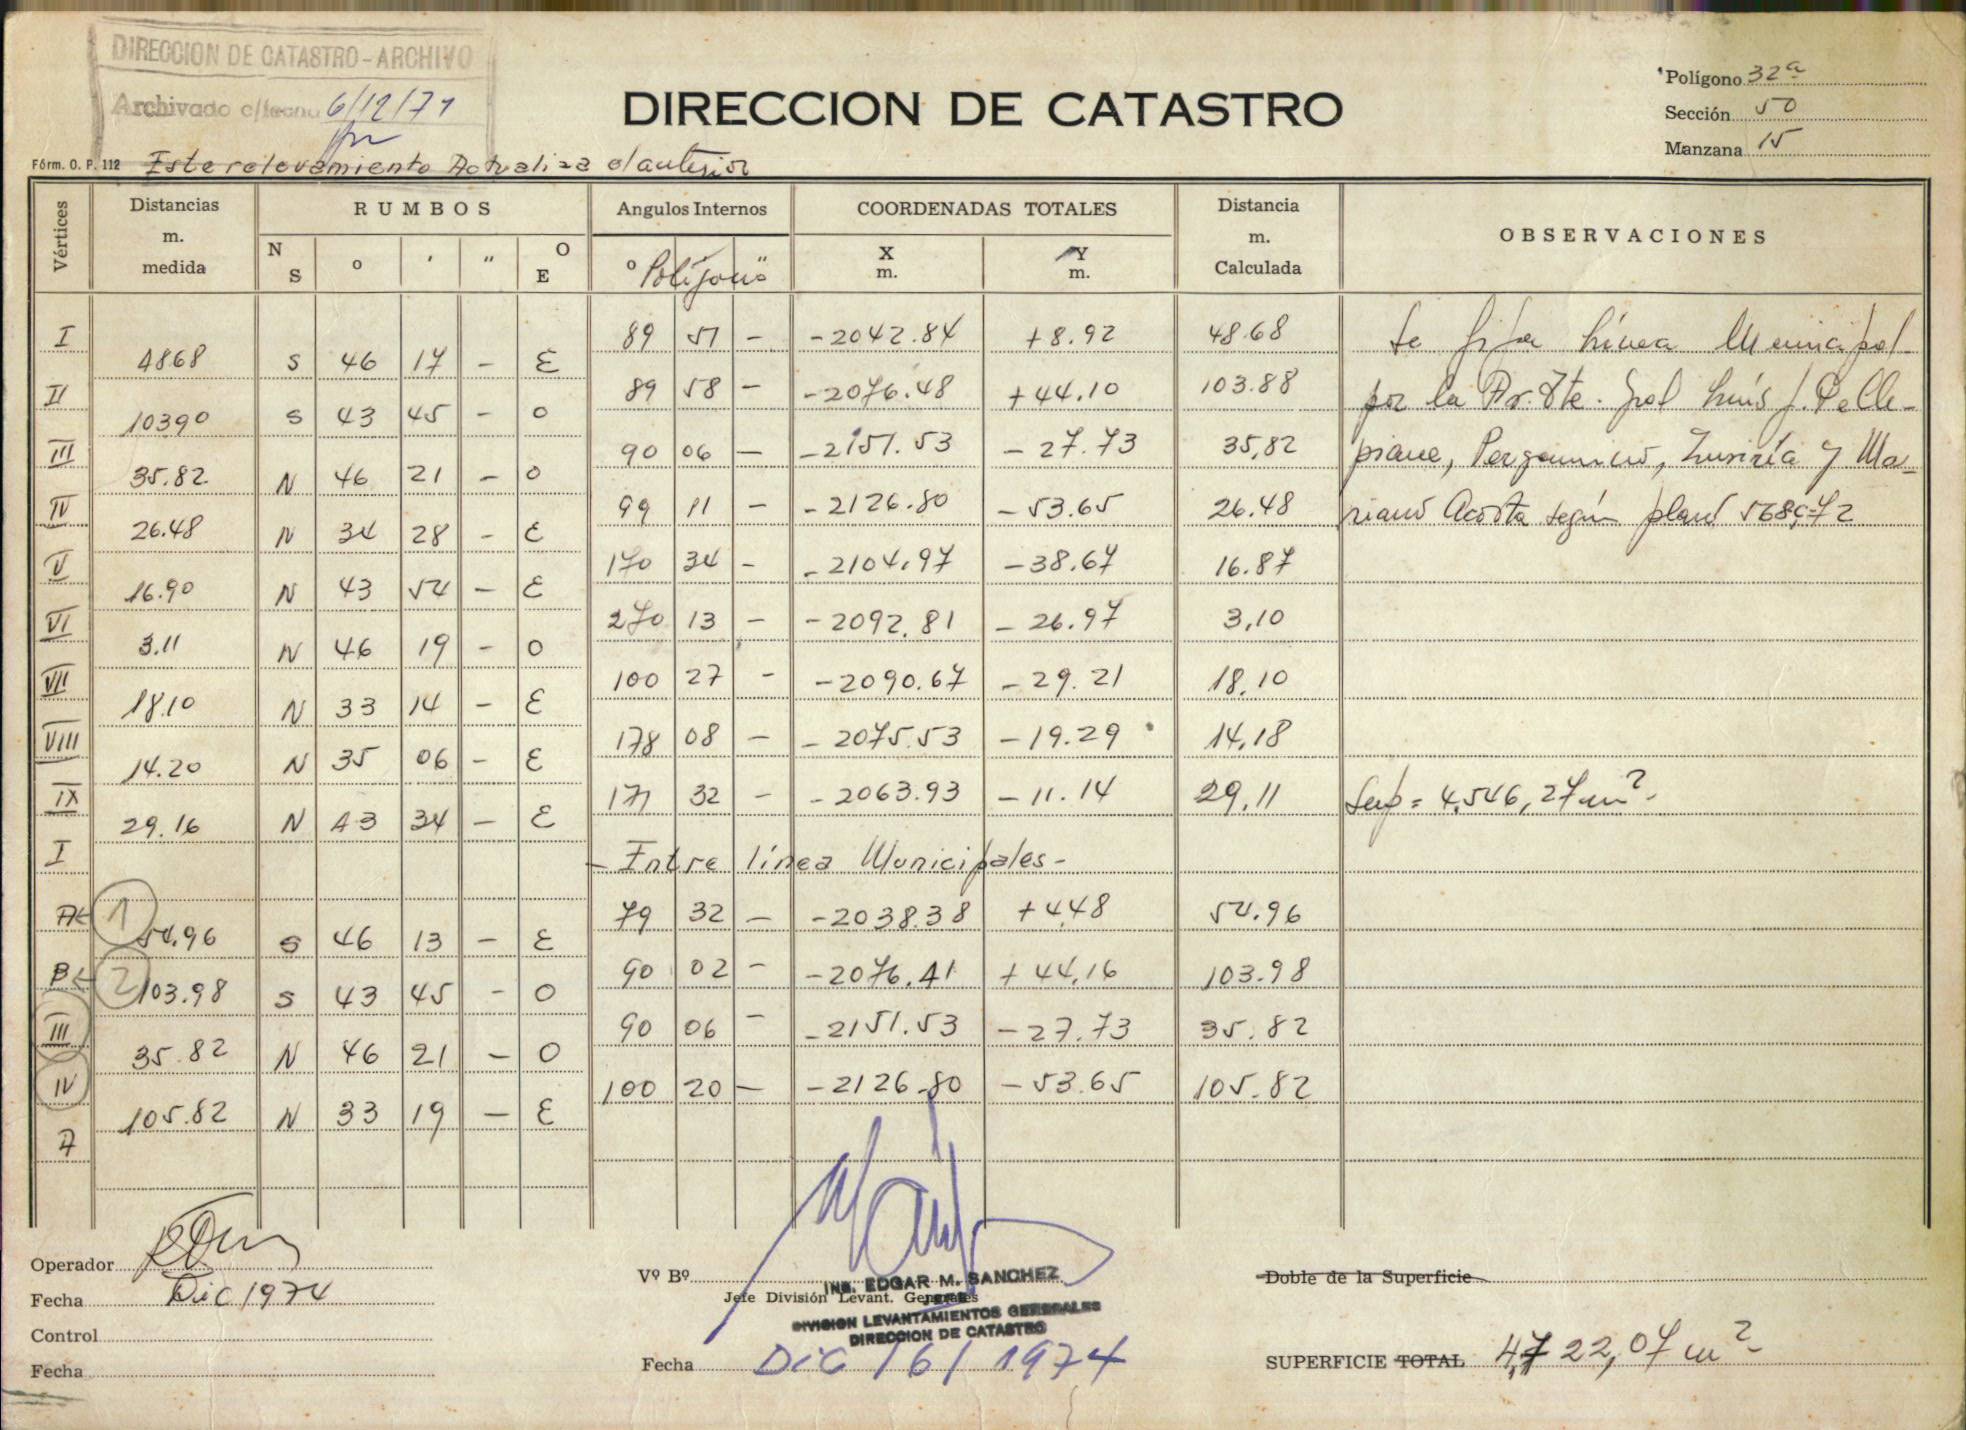 DIRECCION DE CATASTRO - ARCHIVO
Archivado c/fecha 6/12/71
DIRECCION DE CATASTRO
Polígono 32a
Sección 50
Manzana 15
Fórm. O. P. 112 Este relevamiento Actualiza el anterior
Vértices Distancias m. medida RUMBOS Angulos Internos COORDENADAS TOTALES Distancia m. Calculada OBSERVACIONES
N S o ' " O E o ' " X m. Y m.
Polígono
I 89 51 — -2042.84 +8.92 48.68 Se fija Línea Municipal
48.68 S 46 17 — E
II 89 58 — -2076.48 +44.10 103.88 por la Av. Tte. Gral Luis J. Delle-
103.90 S 43 45 — O
III 90 06 — -2151.53 -27.73 35,82 piane, Pergamino, Zuviría y Ma-
35.82 N 46 21 — O
IV 99 11 — -2126.80 -53.65 26.48 riano Acosta según plano
26.48 N 34 28 — E
V 170 34 — -2104.97 -38.67 16.87
16.90 N 43 54 — E
VI 270 13 — -2092.81 -26.97 3,10
3.11 N 46 19 — O
VII 100 27 — -2090.67 -29.21 18,10
18.10 N 33 14 — E
VIII 178 08 — -2075.53 -19.29 14,18
14.20 N 35 06 — E
IX 171 32 — -2063.93 -11.14 29,11 Sup = 4.546,27 m2-
29.16 N 43 34 — E
I - Entre línea Municipales -
A 1 79 32 — -2038.38 +4.48 54.96
54.96 S 46 13 — E
B 2 90 02 — -2076.41 +44.16 103.98
103.98 S 43 45 — O
III 90 06 — -2151.53 -27.73 35.82
35.82 N 46 21 — O
IV 100 20 — -2126.80 -53.65 105.82
105.82 N 33 19 — E
A
Operador
Fecha Dic 1974
Control
Fecha
Vº Bº
ING. EDGAR M. SANCHEZ
Jefe División Levant. Generales
JEFE
DIVISION LEVANTAMIENTOS GENERALES
DIRECCION DE CATASTRO
Fecha Dic /6/ 1974
Doble de la Superficie
SUPERFICIE TOTAL 4,722,07 m2-